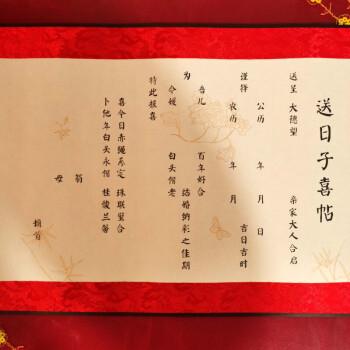 送日子喜帖
送呈 大德望 亲家大人合启
谨择 公历 年 月 日
农历 年 月 吉日吉时
为 吾儿 百年好合 结婚纳彩之佳期
令媛 白头偕老
特此报喜
喜今日赤绳系定 珠联璧合
卜他年白头永偕 桂馥兰馨
翁
母
顿首